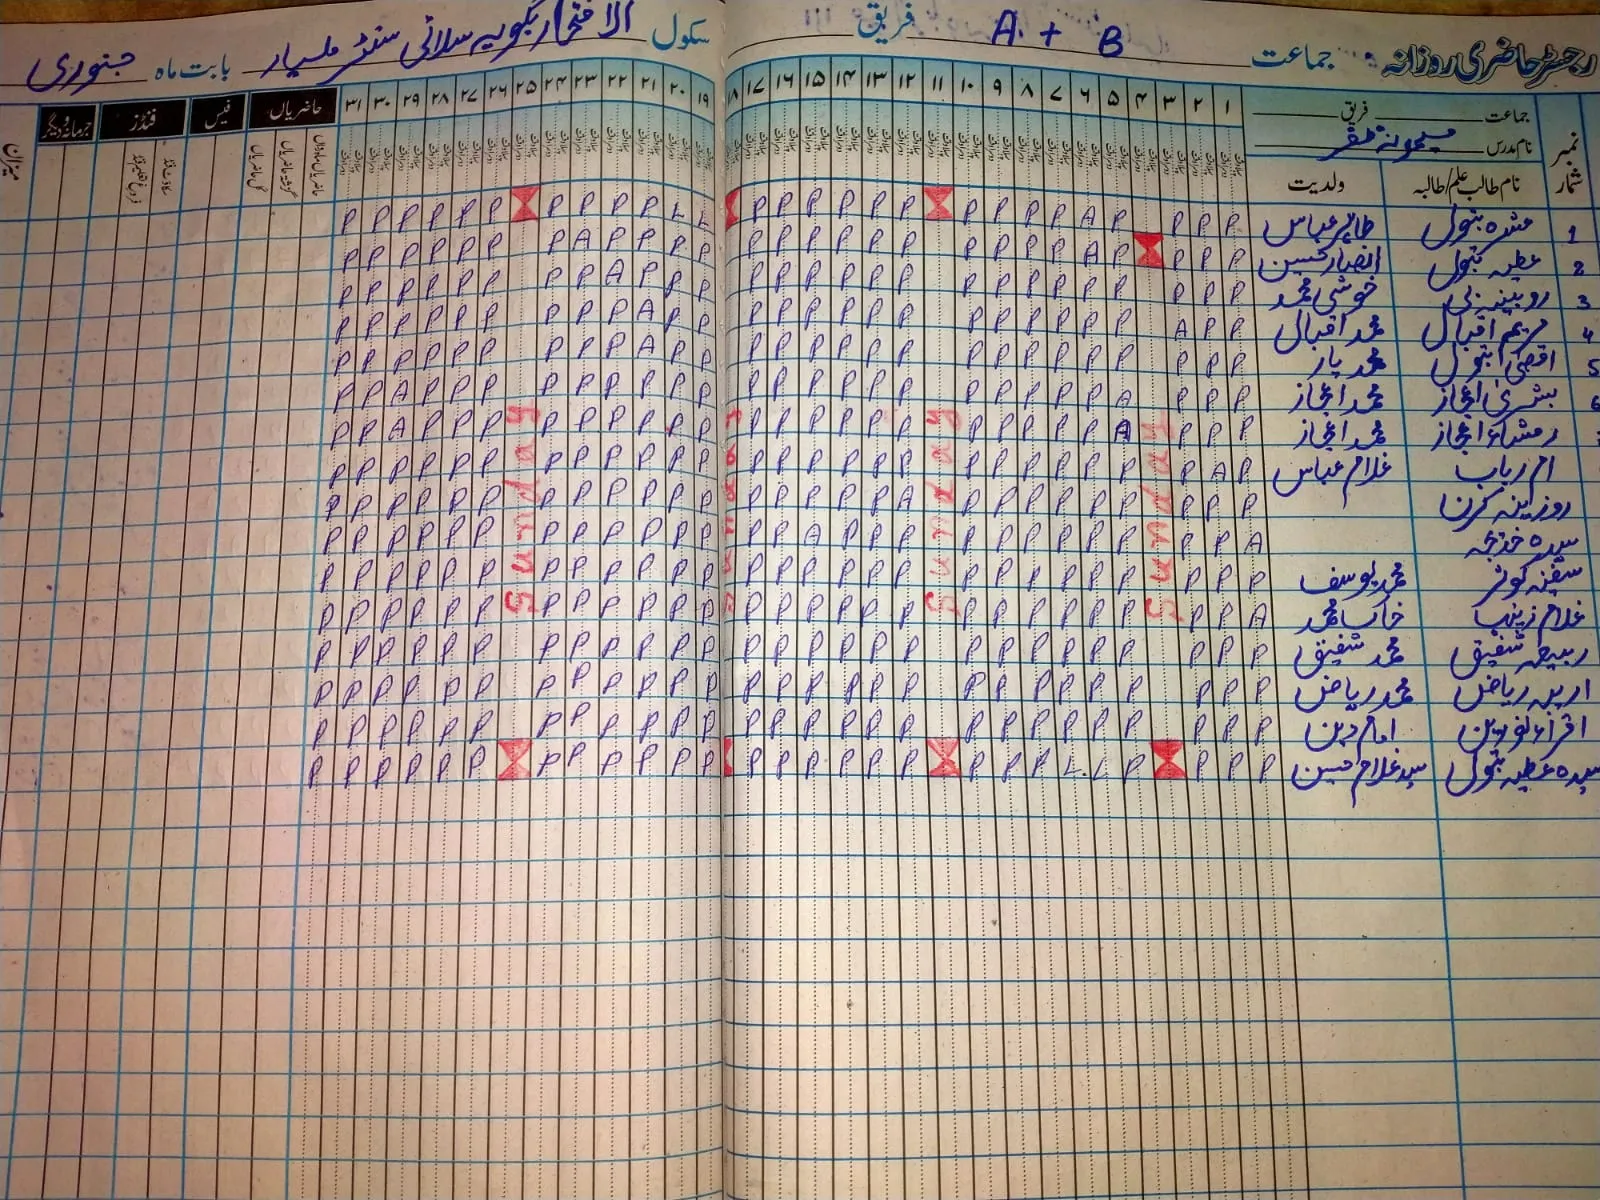 رجسٹر حاضری روزانہ جماعت A + B فریق سکول الافتخار سلائی سنٹر ملسیار بابت ماہ جنوری
جماعت فریق
نام مدرس میمونہ ظفر
نمبر شمار نام طالب علم/طالبہ ولدیت ۱ ۲ ۳ ۴ ۵ ۶ ۷ ۸ ۹ ۱۰ ۱۱ ۱۲ ۱۳ ۱۴ ۱۵ ۱۶ ۱۷ ۱۸ ۱۹ ۲۰ ۲۱ ۲۲ ۲۳ ۲۴ ۲۵ ۲۶ ۲۷ ۲۸ ۲۹ ۳۰ ۳۱ حاضریاں فیس فنڈز جرمانہ و دیگر میزان
1 بتول طاہر عباس P P P P A P P P P P P P P P P L L P P P P P P P P P P
2 عطیہ بتول انصار حسین P P P P A P P P P P P P P P P P P P P A P P P P P P P
3 روبینہ بی بی خوشی محمد P P P P P P P P P P P P P P P P P P A P P P P P P P P
4 مریم اقبال محمد اقبال P P A P P P P P P P P P P P P P P A P P P P P P P P P
5 اقصیٰ بتول محمد یار P P P P P P P P P P P P P P P P P A P P P P P P P P P
6 بشریٰ اعجاز محمد اعجاز P P P A P P P P P P P P P P P P P P P P P P P P A P P
رمشاء اعجاز محمد اعجاز P P P A P P P P P P P P P P P P P P P P P P P P A P P
ام رباب غلام عباس P A P P P P P P P P P P P P P P P P P P P P P P P P P
روزینہ کرن P P P P P P P P P A P P P P P P P P P P P P P P P P P
سیدہ خدیجہ A P P P P P P P P P P P A P P P P P P P P P P P P P P
سفینہ کوثر محمد یوسف P P P P P P P P P P P P P P P P P P P P P P P P P P P
غلام زینب محمد A P P P P P P P P P P P P P P P P P P P P P P P P P P
ربیعہ شفیق محمد شفیق P P P P P P P P P P P P P P P P P P P P P P P P P P P
اریبہ ریاض محمد ریاض P P P P P P P P P P P P P P P P P P P P P P P P P P P
اقراء نورین امام دین P P P P P P P P P P P P P P P P P P P P P P P P P P P
سیدہ عطیہ بتول سید غلام حسین P P P P L L P P P P P P P P P P P P P P P P P P P P P
Sunday
Sunday
Sunday
Sunday